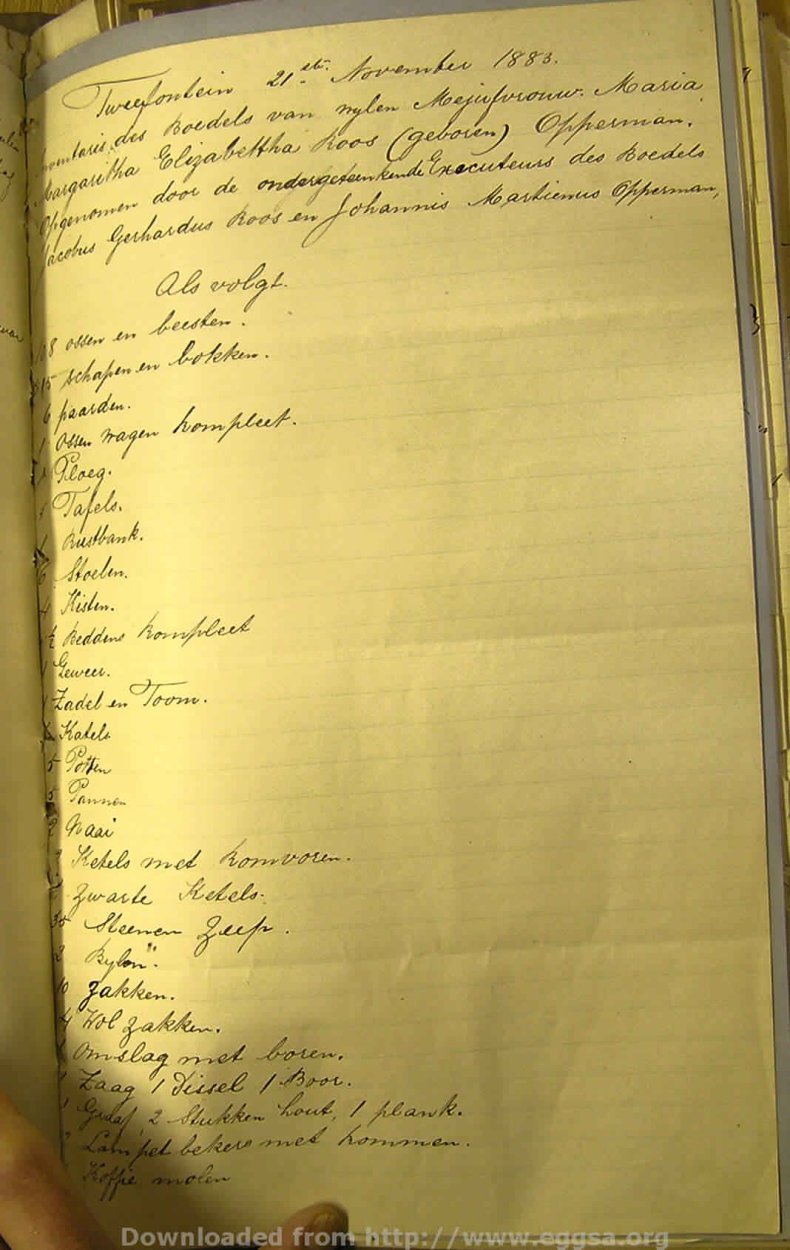 Tweefontein 21ste November 1883.
Inventaris des Boedels van wylen Mejufvrouw. Maria
Margaritha Elizabettha Roos (geboren) Opperman.
Opgenomen door de ondergeteenkende Executeurs des Boedels
Jacobus Gerhardus Roos en Johannis Martienus Opperman,
Als volgt.
8 ossen en beesten.
15 schapen en bokken.
6 paarden.
1 Ossen wagen kompleet.
Ploeg.
Tafels.
1 Rustbank.
6 Stoelen.
4 Kisten.
2 Beddens kompleet
Geweer.
Zadel en Toom.
Katels
5 Potten
5 Pannen
2 Naai
Ketels met komvoren.
Zwarte Ketels.
30 Steenen Zeep.
2 Bylen.
10 Zakken.
4 Wol zakken.
1 Omslag met boren.
1 Zaag 1 Dissel 1 Boor.
1 Graaf, 2 Stukken hout, 1 plank.
2 Lampet bekers met kommen.
Koffie molen
Downloaded from http://www.eggsa.org